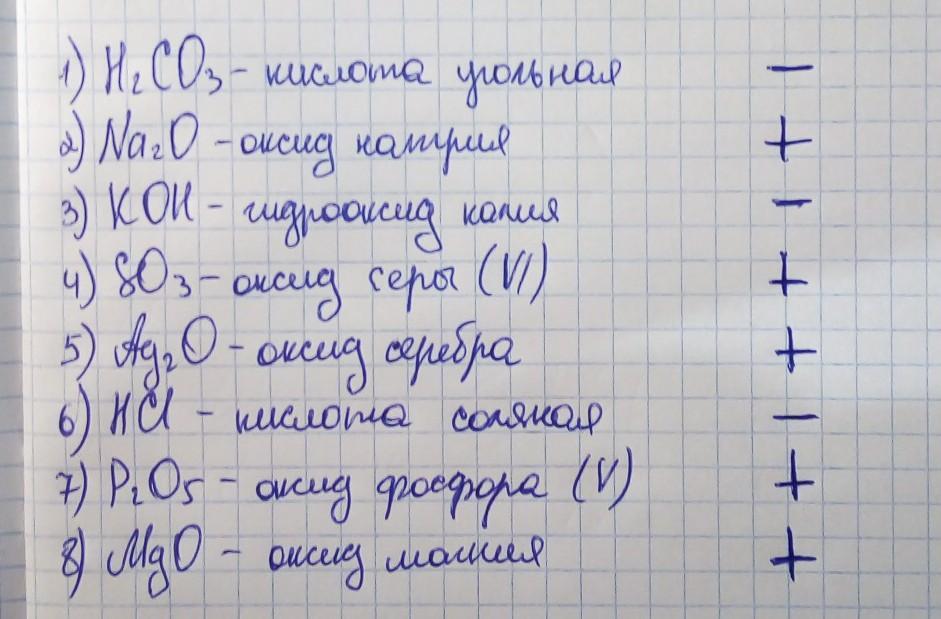 1) H₂CO₃ - кислота угольная -
2) Na₂O - оксид натрия +
3) KOH - гидрооксид калия -
4) SO₃ - оксид серы (VI) +
5) Ag₂O - оксид серебра +
6) HCl - кислота соляная -
7) P₂O₅ - оксид фосфора (V) +
8) MgO - оксид магния +